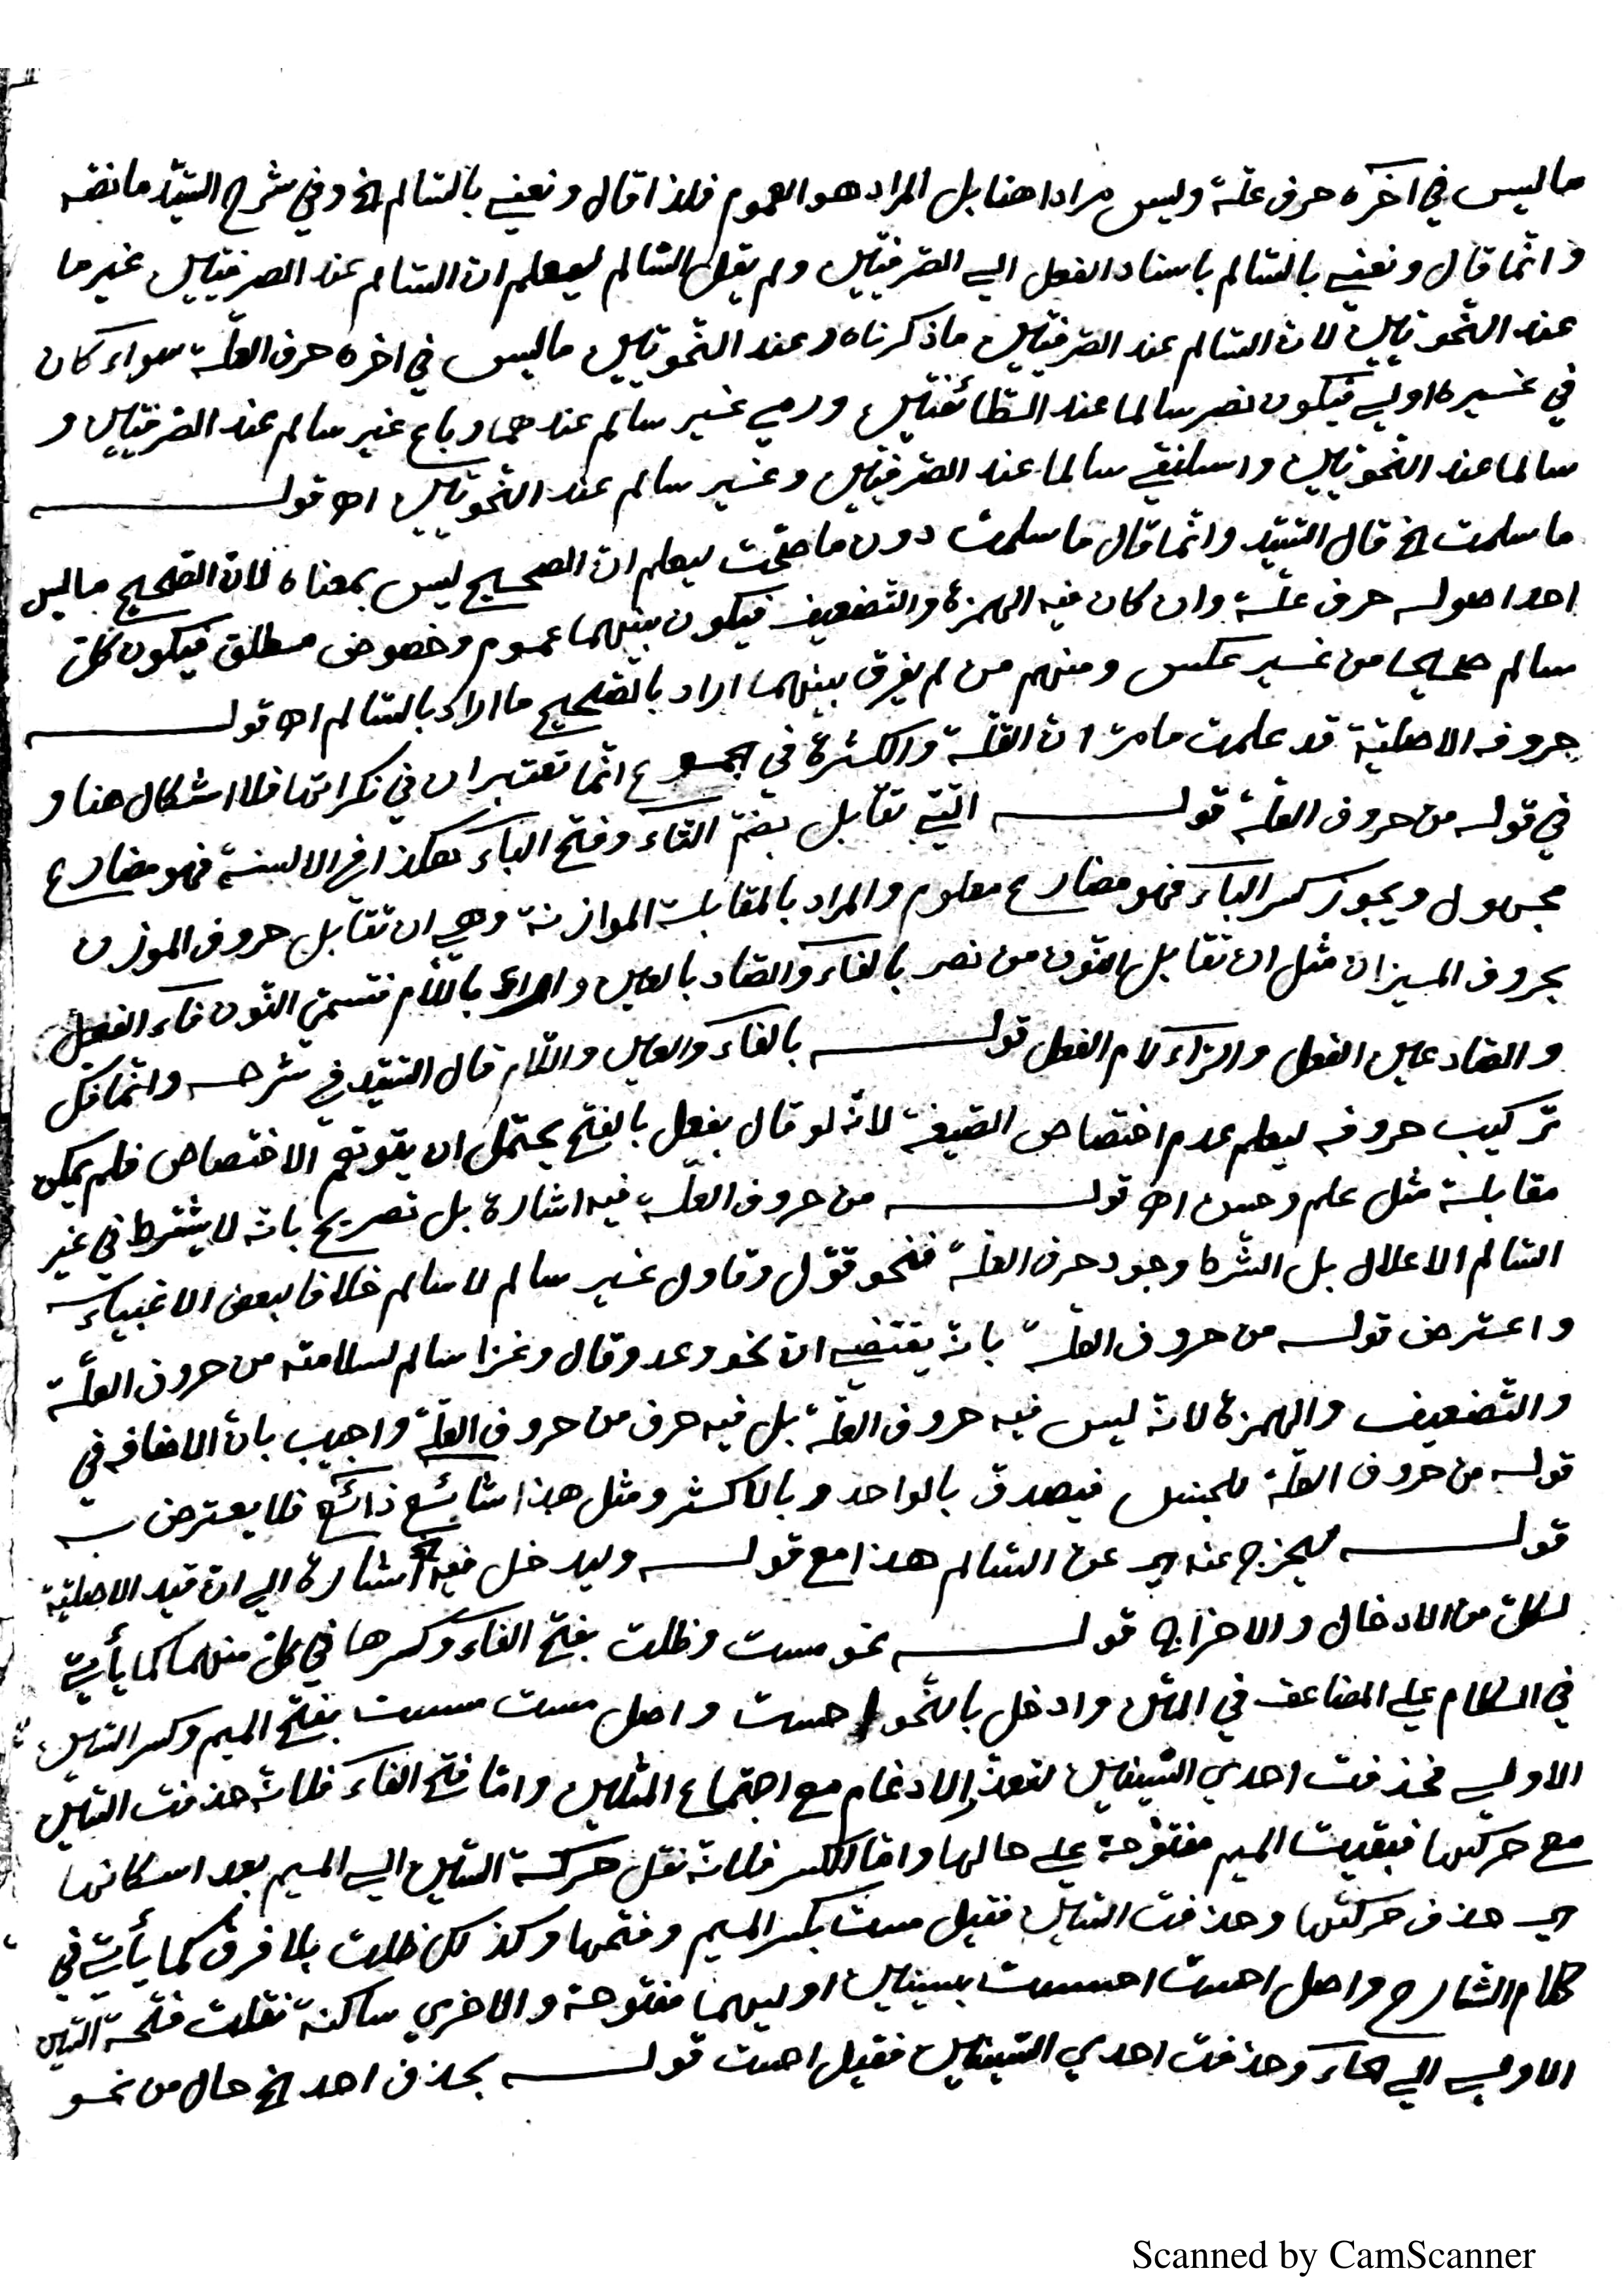 ما ليس في اخره حرف علة وليس مرادا هنا بل المراد هو العموم فلذا قال ونعني بالسالم الخ وفي شرح السيد ما نصه
وانما قال ونعني بالسالم باسناد الفعل الى الصرفيين ولم يقل السالم ليعلم ان السالم عند الصرفيين غير ما
عند النحويين لان السالم عند الصرفيين ما ذكرناه وعند النحويين ما ليس في اخره حرف العلة سواء كان
في غيره او لا فيكون نصر سالما عند الطائفتين ورمى غير سالم عندهما وباع غير سالم عند الصرفيين و
سالما عند النحويين واسلنقى سالما عند الصرفيين وغير سالم عند النحويين اه قوله
ما سلمت الخ قال السيد وانما قال ما سلمت دون ما صحت ليعلم ان الصحيح ليس بمعناه لان الصحيح ما ليس
احد اصوله حرف علة وان كان فيه الهمزة والتضعيف فيكون بينهما عموم وخصوص مطلق فيكون كل
سالم صحيحا من غير عكس ومنهم من لم يفرق بينهما اراد بالصحيح ما اراد بالسالم اه قوله
حروفه الاصلية قد علمت مما مر ان القلة والكثرة في الجموع انما تعتبران في نكراتها فلا اشكال هنا و
في قوله من حروف العلة قوله التي تقابل بضم التاء وفتح الباء هكذا في الالسنة فهو مضارع
مجهول ويجوز كسر الباء فهو مضارع معلوم والمراد بالمقابلة الموازنة وهي ان تقابل حروف الموزون
بحروف الميزان مثل ان تقابل النون من نصر بالفاء والصاد بالعين والراء باللام فتسمى النون فاء الفعل
والصاد عين الفعل والراء لام الفعل قوله بالفاء والعين واللام قال السيد في شرحه وانما فك
تركيب حروفه ليعلم عدم اختصاص الصيغة لانه لو قال بفعل بالفتح يحتمل ان يتوهم الاختصاص فلم يمكن
مقابلة مثل علم وحسن اه قوله من حروف العلة فيه اشارة بل تصريح بانه لا يشترط في غير
السالم الاعلال بل الشرط وجود حرف العلة فنحو قوّل وقاول غير سالم لا سالم خلافا لبعض الاغبياء
واعترض قوله من حروف العلة بانه يقتضي ان نحو وعد وقال وغزا سالم لسلامته من حروف العلة
والتضعيف والهمزة لانه ليس فيه حروف العلة بل فيه حرف من حروف العلة واجيب بان الاضافه في
قوله من حروف العلة للجنس فيصدق بالواحد وبالاكثر ومثل هذا شائع ذائع فلا يعترض به
قوله ليخرج عنه اي عن السالم هذا مع قوله وليدخل فيه اشارة الى ان قيد الاصلية
لكل من الادخال والاخراج قوله نحو مست وظلت بفتح الفاء وكسرها في كل منهما كما يأتي
في الكلام على المضاعف في المتن وادخل بالنحو احست واصل مست مسست بفتح الميم وكسر السين
الاولى فحذفت احدى السينين لتعذر الادغام مع اجتماع المثلين واما فتح الفاء فلانه حذفت السين
مع حركتها فبقيت الميم مفتوحة على حالها واما الكسر فلانه نقل حركة السين الى الميم بعد اسكانها
اي حذف حركتها وحذفت السين فقيل مست بكسر الميم وفتحها وكذلك ظلت بلا فرق كما يأتي في
كلام الشارح واصل احست احسست بسينين اوليهما مفتوحة والاخرى ساكنة نقلت فتحة السين
الاولى الى الحاء وحذفت احدى السينين فقيل احست قوله بحذف احد الخ حال من نحو
Scanned by CamScanner